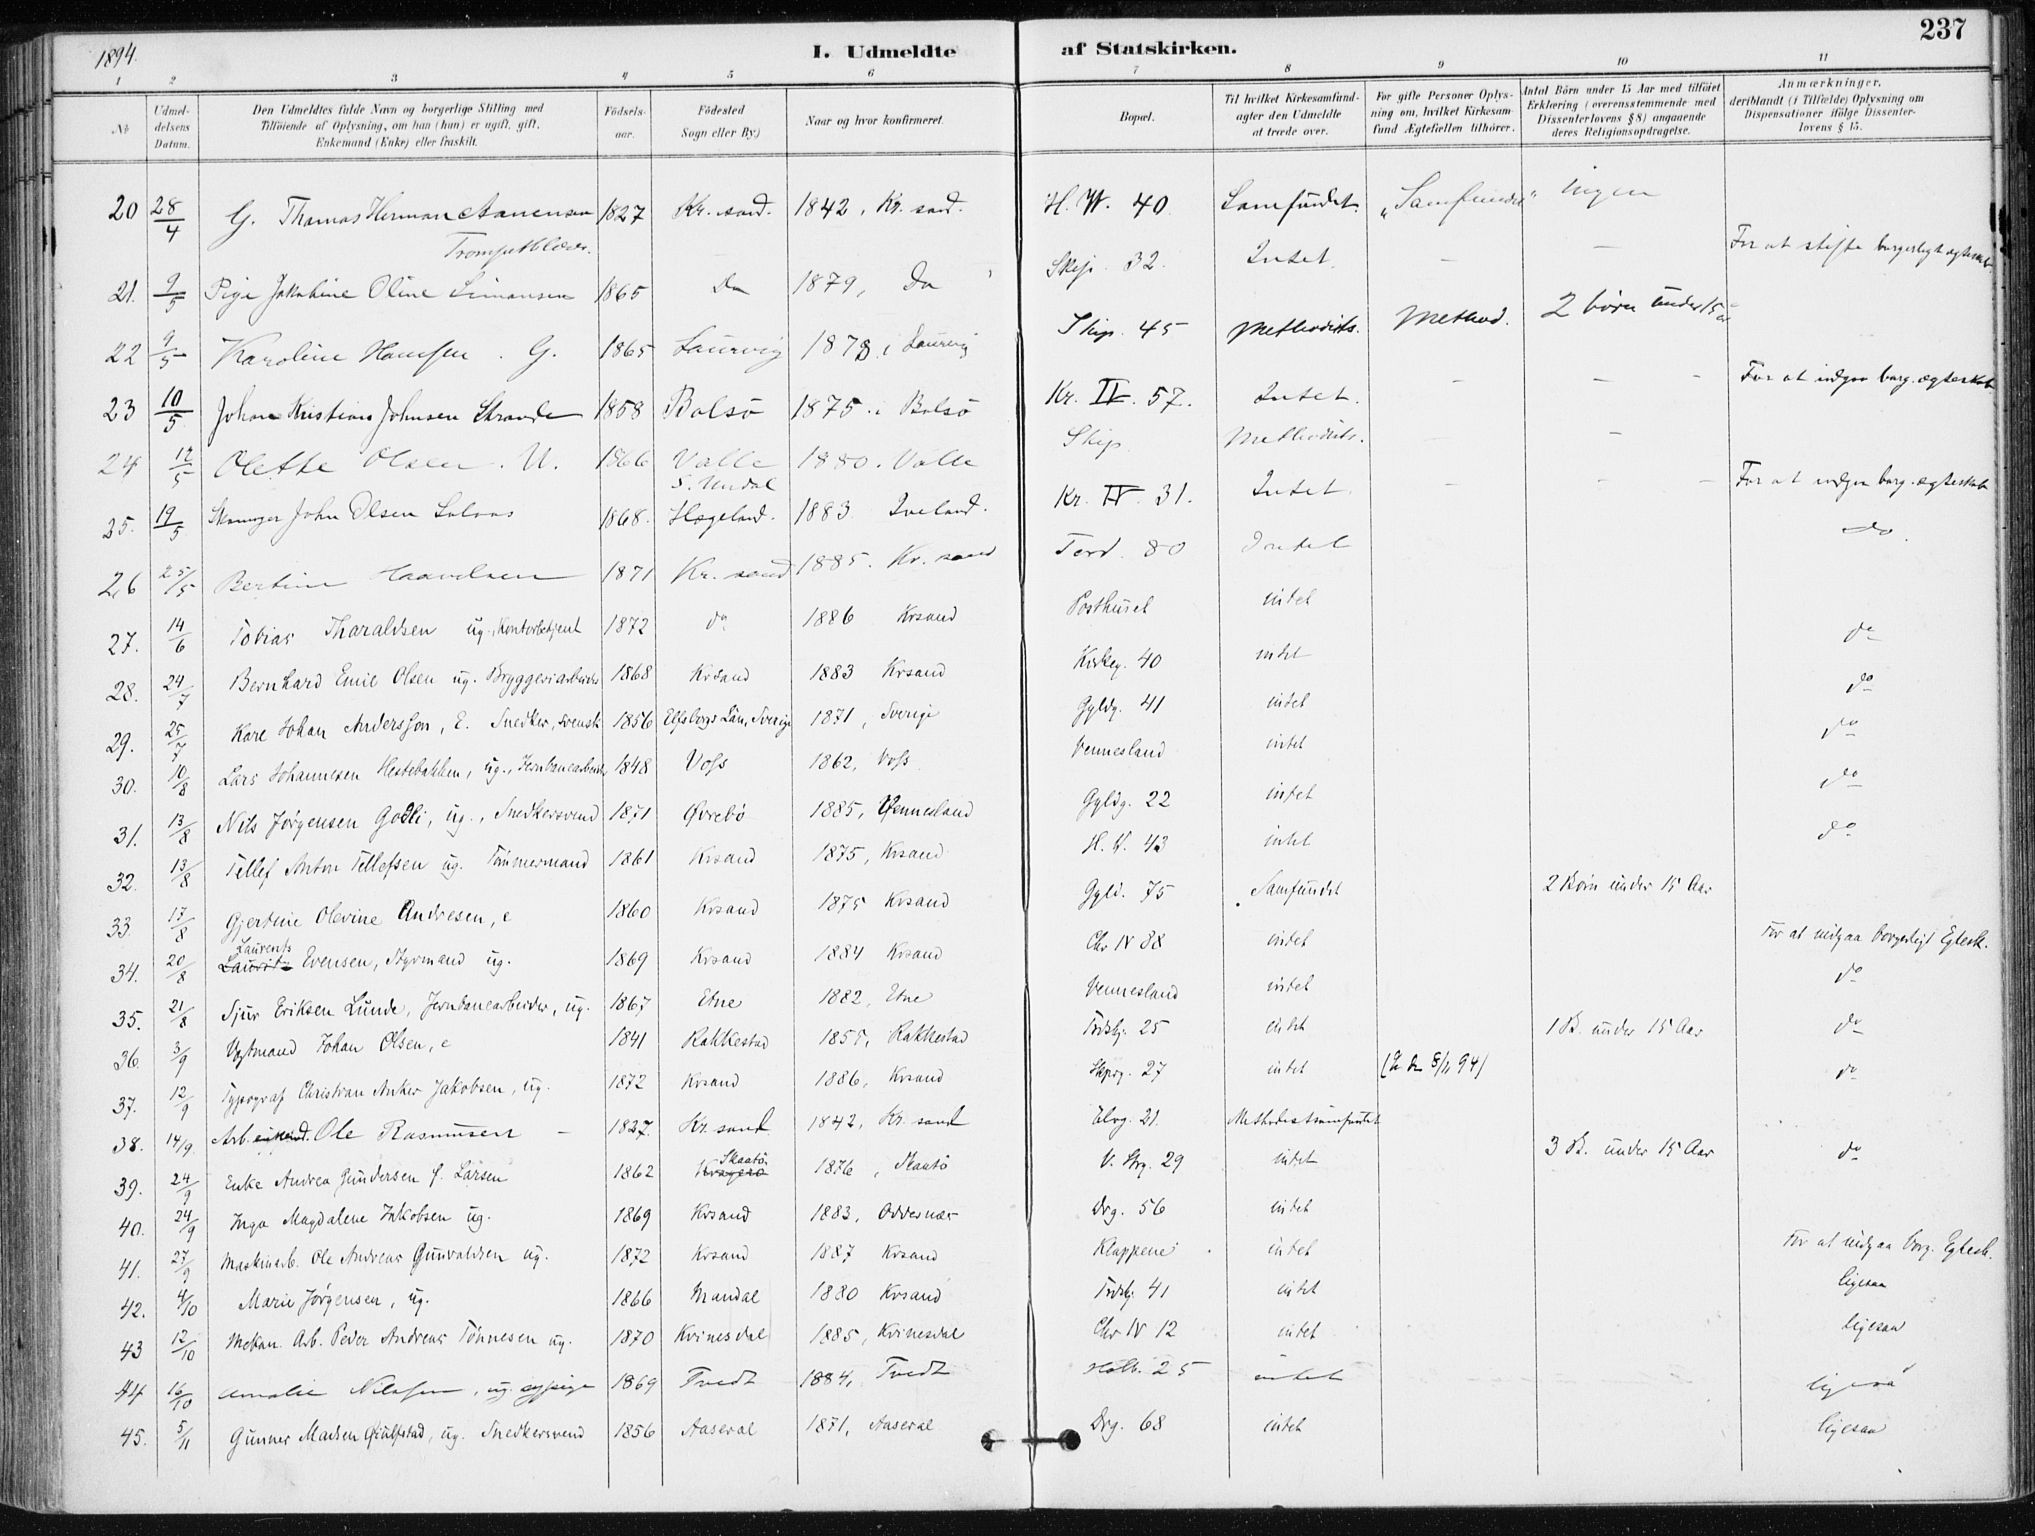 237
1894.
I. Udmeldte af Statskirken.
1 2 3 4 5 6 7 8 9 10 11
No
Udmeldelsens Datum.
Den Udmeldtes fulde Navn og borgerlige Stilling med Tilføiende af Oplysning, om han (hun) er ugift, gift, Enkemand (Enke) eller fraskilt.
Fødselsaar.
Fødested Sogn eller By.)
Naar og hvor konfirmeret.
Bopæl.
Til hvilket Kirkesamfund agter den Udmeldte at træde over.
For gifte Personer Oplysning om, hvilket Kirkesamfund Ægtefællen tilhører.
Antal Børn under 15 Aar med tilføiet Erklæring (overensstemmende med Dissenterlovens § 8) angaaende deres Religionsopdragelse.
Anmærkninger, deriblandt (i Tilfælde) Oplysning om Dispensationer ifølge Dissenterlovens § 15.
20 28/4 G. Thomas Herman Aanensen 1827 Kr. sand. 1842, Kr. sand. H. W. 40 Samfundet. "Samfundet" ingen
21. 9/5 Pige Jakobine Oline Simonsen 1865 Do 1879, Do Skip. 32. Intet. — — For at stifte borgerligt ægteskab
22 9/5 Karoline Hansen. G. 1865 Laurvig 1878 i Laurvig Skip. 45 Methodists. Method. 2 børn under 15 år
23 10/5 Johan Kristian Johnsen Strande 1858 Bolsö 1875. i Bolsö Kr. IV. 57. Intet. — — — For at indgaa borg. ægteskab
24 12/5 Olette Olsen. U. 1866 Valle S. Undal 1880. Valle Skip Methodists. — —
25. 19/5 John Olsen 1868. Hægeland. 1883. Iveland. Kr. IV 31. Intet. — — — For at indgaa borg. ægteskab
26 25/5 Bertine Haavelsen 1871 Kr. sand 1885. Kr. sand Tord. 80 Intet do.
27. 14/6 Tobias Tharaldsen ug., Kontorbetjent 1872 do 1886 Krsand Posthuset intet do
28. 24/7 Bernhard Emil Olsen ug. Bryggeriarbeider 1868 Krsand 1883 Krsand Kirkeg. 40 intet do
29. 25/7 Karl Johan Andersson, E. Snedker, svensk 1856 Elfsborgs Län, Sverige 1871, Sverige Gyldg. 41 intet do
30. 10/8 Lars Johannesen Hestebakken, ug., Jernbanearbeider 1848 Voss 1862, Voss Vennesland intet do
31. 13/8 Nils Jørgensen Godli, ug., Snedkersvend 1871 Øvrebö 1885, Vennesland Gyldg. 22 intet do
32. 13/8 Tellef Anton Tellefsen ug. Tömmermand 1861 Krsand 1875, Krsand H. V. 43 intet
33. 17/8 Gjertine Olevine Andresen, e 1860 Krsand 1875 Krsand Gyld. 75 Samfundet 2 Börn under 15 Aar
34. 20/8 Laurents Evensen, Styrmand ug. 1869 Krsand 1884 Krsand Chr IV 88 intet For at indgaa borgerligt Egtesk.
35. 21/8 Sjur Eriksen Lunde, Jernbanearbeider, ug. 1867 Etne 1882, Etne Vennesland intet do
36. 3/9 Vogtmand Johan Olsen, e 1841 Rakkestad 1857, Rakkestad Tordskj. 25 intet 1 B. under 15 Aar do
37. 12/9 Typograf Christian Anker Jakobsen, ug. 1872 Krsand 1886, Krsand Skprg. 27 intet 8/11 94) do
38. 14/9 Arb. Ole Rasmusen — 1827. Kr. sand 1842, Kr. sand Elvg. 21. Methodistsamfundet
39. 24/9 Enke Andrea Gundersen f. Larsen 1862 Kragerø Skaatö 1876, Skaatö V. Strg. 29 intet 3 B. under 15 Aar do
40. 24/9 Inga Magdalene Jakobsen ug. 1869 Krsand 1883, Oddernæs Drg. 56 intet
41. 27/9 Maskinarb. Ole Andreas Gunvaldsen ug. 1872 Krsand 1887 Krsand Klappene intet For at indgaa borg. Egtesk.
42. 4/10 Marie Jørgensen, ug. 1866 Mandal 1880 Krsand Tordskj. 41 intet ligesaa
43 12/10 Mekan. Arb. Peder Andreas Tönnesen ug. 1870 Kvinesdal 1885, Kvinesdal Chr IV 12 intet ligesaa
44 16/10 Amalie Nilssen, ug. sypige 1869 Tvedt 1884, Tvedt Holb. 25 intet ligesaa
45. 5/11 Gunner Madsen ug. Snedkersvend 1856 Aaseral 1871, Aaseral Drg. 68 intet ligesaa